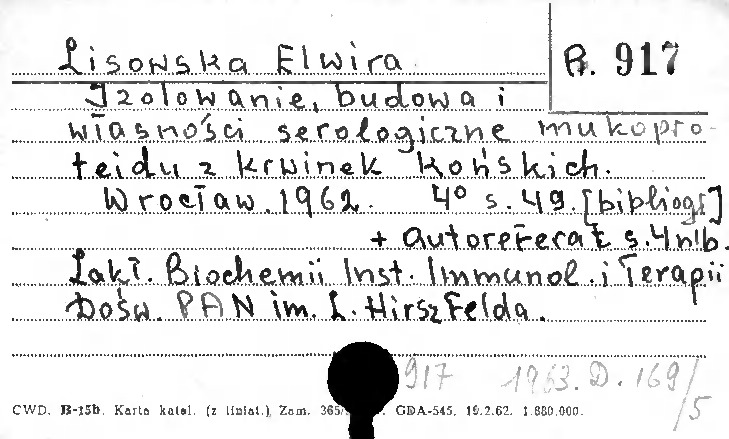 Lisowska Elwira
B. 917
Izolowanie, budowa i
własności serologiczne mukopro-
teidu z krwinek końskich.
Wrocław. 1962. 4° s. 49. [bibliogr]
+ autoreferat s. 4 nlb.
Zakł. Biochemii Inst. Immunol. i Terapii
Dośw. PAN im. L. Hirszfelda.
917 1963. D. 169/5
CWD. B-15b. Karta katal. (z liniat.) Zam. 365/ GDA-545. 19.2.62. 1.880.000.